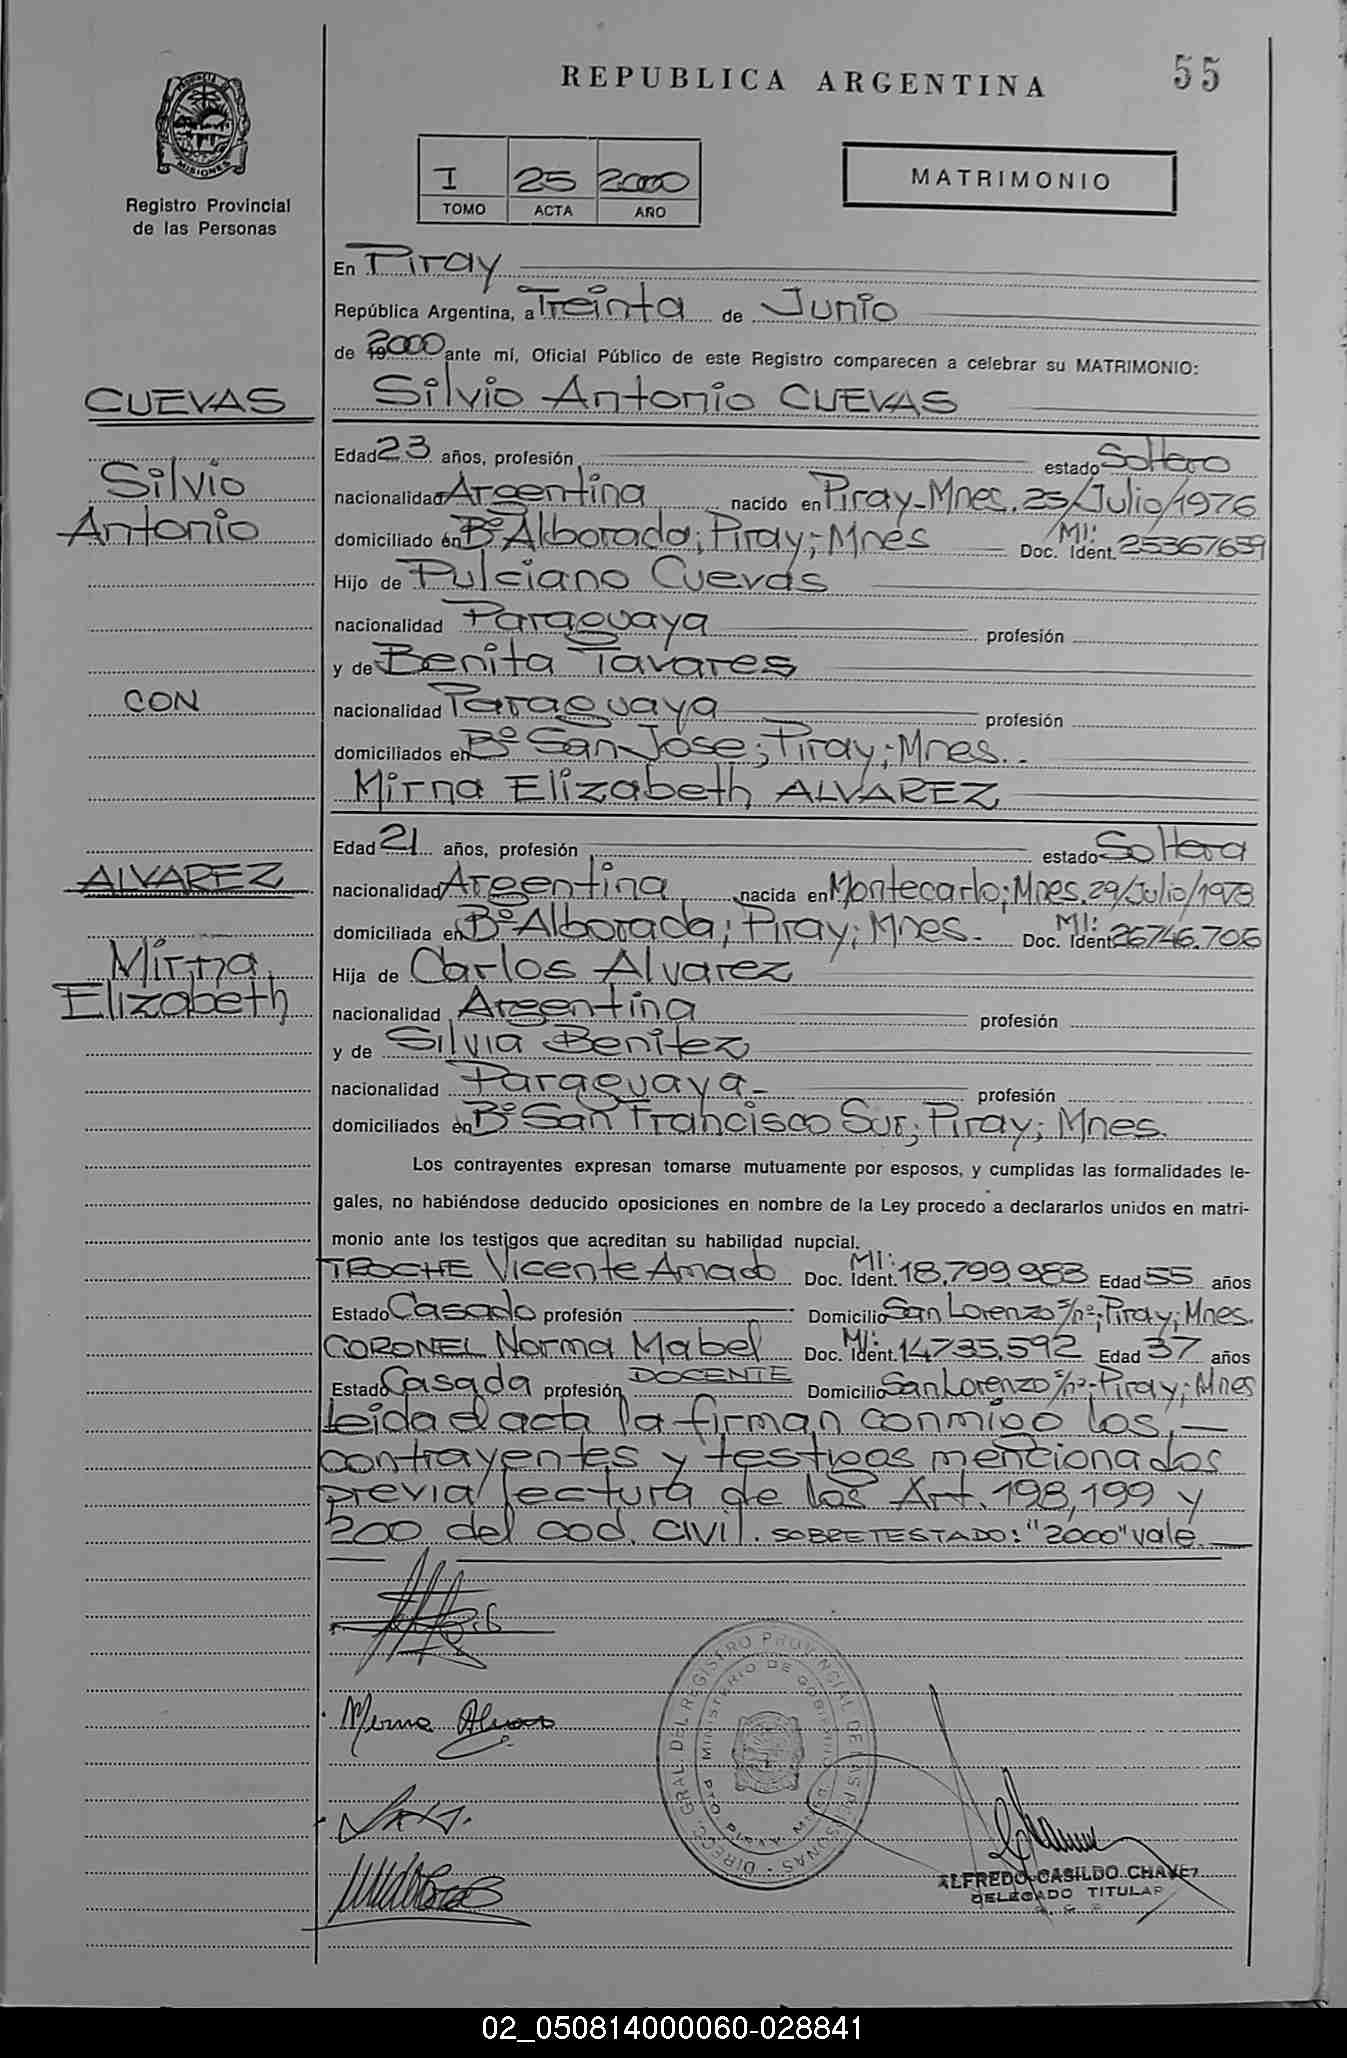 55
REPUBLICA ARGENTINA
MISIONES
Registro Provincial
de las Personas
I 25 2000
TOMO ACTA AÑO
MATRIMONIO
En Piray
República Argentina, a Treinta de Junio
de 2000 ante mí, Oficial Público de este Registro comparecen a celebrar su MATRIMONIO:
CUEVAS
Silvio
Antonio
CON
ALVAREZ
Mirna
Elizabeth
Silvio Antonio CUEVAS
Edad 23 años, profesión estado Soltero
nacionalidad Argentina nacido en Piray-Mnes. 25/Julio/1976
domiciliado en Bº Alborada; Piray;-Mnes MI:
Doc. Ident. 25367659
Hijo de Pulciano Cuevas
nacionalidad Paraguaya profesión
y de Benita Tavares
nacionalidad Paraguaya profesión
domiciliados en Bº San Jose; Piray;-Mnes.-
Mirna Elizabeth ALVAREZ
Edad 21 años, profesión estado Soltera
nacionalidad Argentina nacida en Montecarlo; Mnes. 29/Julio/1978
domiciliada en Bº Alborada; Piray; Mnes.- MI:
Doc. Ident. 26746.706
Hija de Carlos Alvarez
nacionalidad Argentina profesión
y de Silvia Benitez
nacionalidad Paraguaya- profesión
domiciliados en Bº San Francisco Sur; Piray; Mnes.
Los contrayentes expresan tomarse mutuamente por esposos, y cumplidas las formalidades le-
gales, no habiéndose deducido oposiciones en nombre de la Ley procedo a declararlos unidos en matri-
monio ante los testigos que acreditan su habilidad nupcial.
TROCHE Vicente Amado MI: Doc. Ident. 18.799.983 Edad 55 años
Estado Casado profesión Domicilio San Lorenzo s/nº; Piray; Mnes.
CORONEL Norma Mabel MI: Doc. Ident. 14.735.592 Edad 37 años
Estado Casada profesión DOCENTE Domicilio San Lorenzo s/nº;-Piray;-Mnes
leida el acta la firman conmigo los,—
contrayentes y testigos mencionados
previa lectura de los Art. 198,199 y
200 del cod. civil. SOBRETESTADO: "2000" vale.—
Mirna Alvarez
DIRECC. GRAL. DEL REGISTRO PROVINCIAL DE LAS PERSONAS
MINISTERIO DE GOBIERNO
PIRAY
ALFREDO CASILDO CHAVEZ
DELEGADO TITULAR
02_050814000060-028841